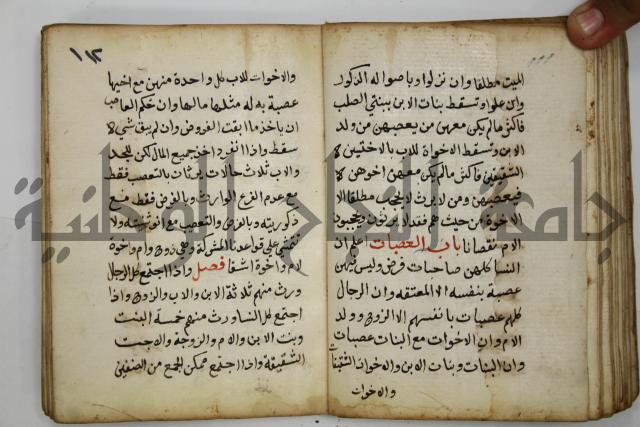 الميت مطلقا وان نزلوا وباصوله الذكور
وان علوا وتسقط بنات الابن ببنتي الصلب
فاكثر مالم يكن معهن من يعصبهن من ولد
الابن وتسقط الاخوات للاب بالاختين لا
الشقيقتين فاكثر مالم يكن معهن اخوهن لا
فيعصبهن ومن لا يرث لا يحجب مطلقا الا
الاخوة من حيث هم فقد لا يرثون ويحجبون
الام نقصانا باب العصبات اعلم ان
النسا كلهن صاحبات فرض وليس فيهن
عصبة بنفسه الا المعتقه وان الرجال
كلهم عصبات بانفسهم الا الزوج وولد
الام وان الاخوات مع البنات عصبات
وان البنات وبنات الابن والاخوات الشقيقات
والاخوات
١١٢
والاخوات للاب كل واحدة منهن مع اخيها
عصبة به له مثلها مالها وان حكم العاصب
ان ياخذ ما ابقت الفروض وان لم يبق شي لا
سقط واذا انفرد اخذ جميع المال لكن للجد
والاب ثلاث حالات يرثان بالتعصيب فقط
مع عدم الفرع الوارث وبالفرض فقط مع
ذكوريته وبالفرض والتعصيب مع انوثيته ولا
تمشي على قواعدنا المشركة وهي زوج وام واخوة
لام واخوة اشقا فصل واذا اجتمع كل الرجال
ورث منهم ثلاثة الابن والاب والزوج واذا
اجتمع كل النسا ورث منهن خمسة البنت
وبنت الابن والام والزوجة والاخت
الشقيقة واذا اجتمع ممكن الجمع من الصنفين
جامعة النجاح الوطنية